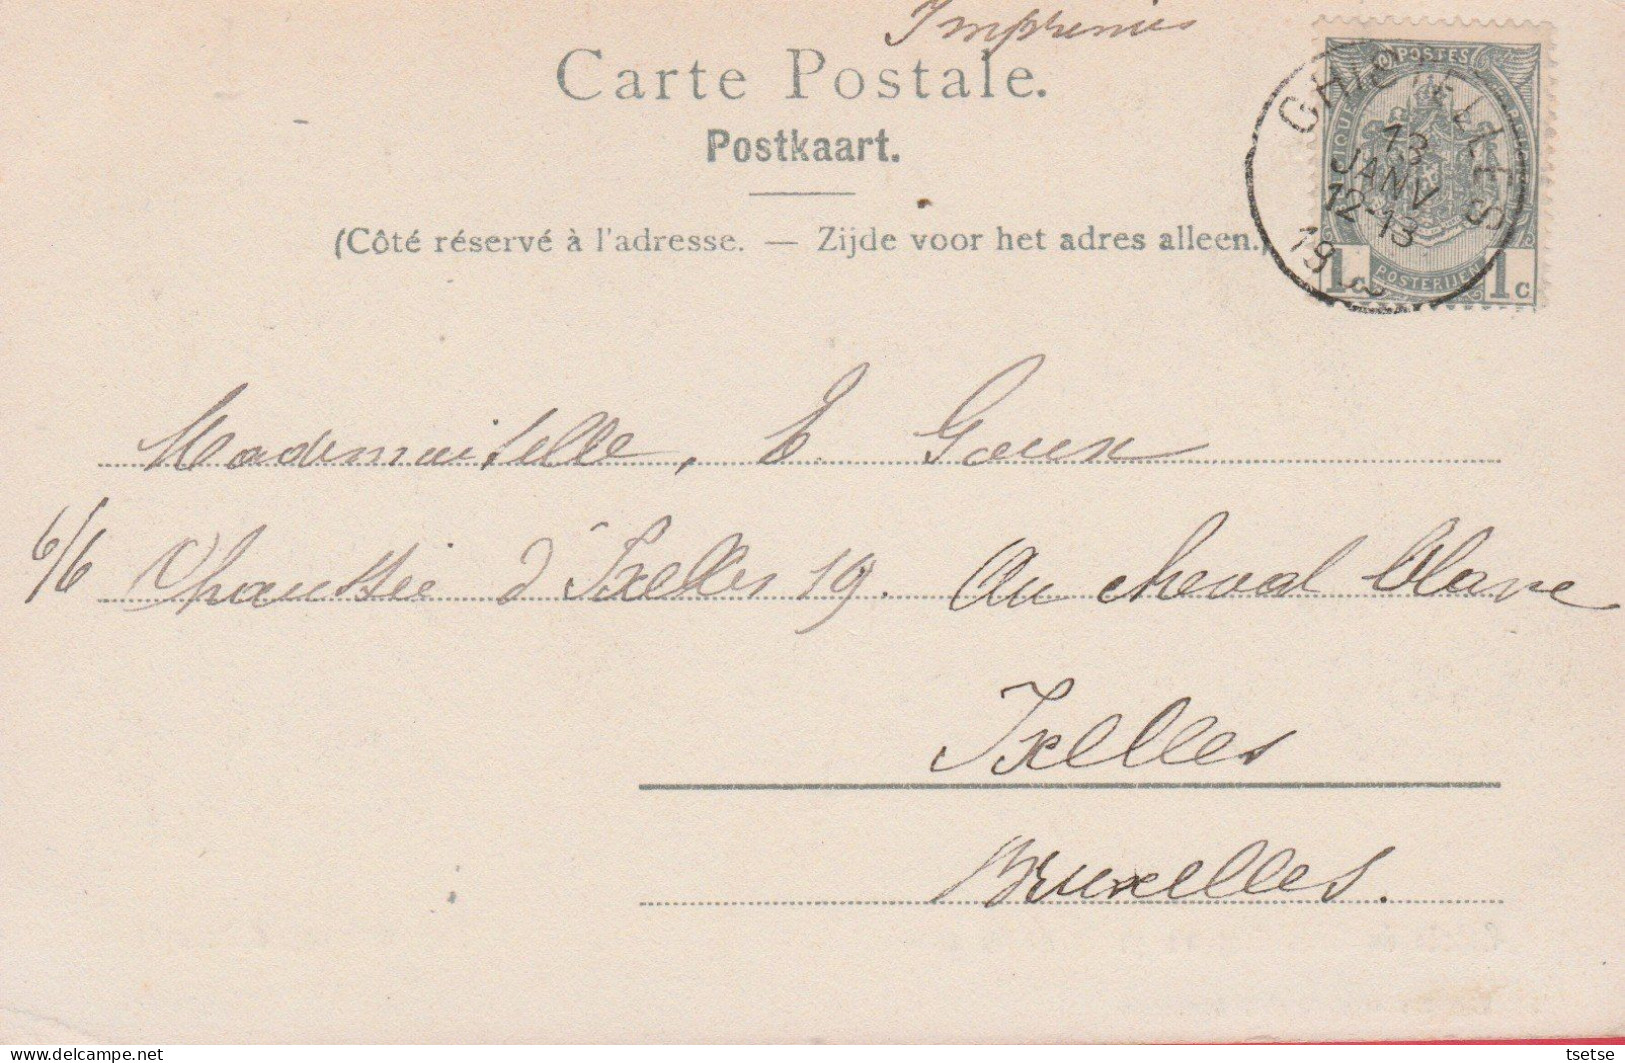 Imprimés
Carte Postale.
Postkaart.
(Côté réservé à l'adresse. — Zijde voor het adres alleen.)
POSTES
GHISTELLES
13
JANV
12-13
19
POSTERIJEN
1c 1c
Mademoiselle, E. Goux
6/6 Chaussée d'Ixelles 19. Au cheval blanc
Ixelles
Bruxelles.
tsetse